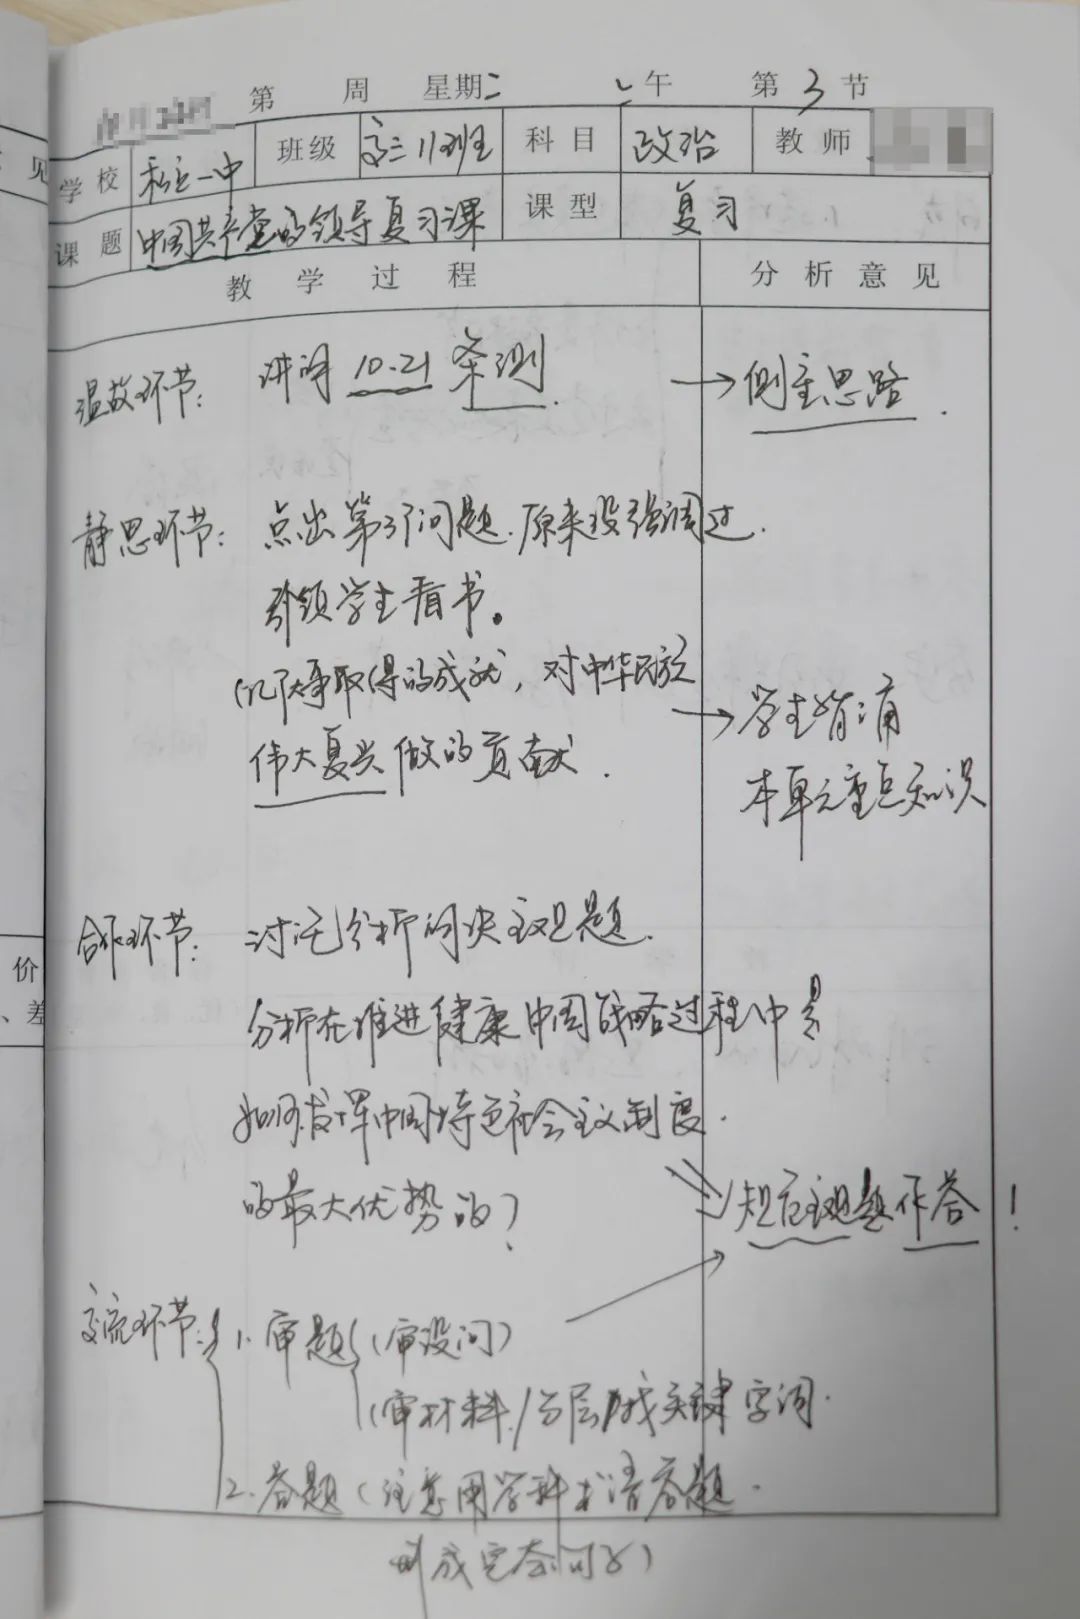 第 周 星期二 午 第 3 节
学校 私立一中 班级 高三11班 科目 政治 教师
课题 中国共产党的领导复习课 课型 复习
教学过程 分析意见
温故环节: 讲评 10.21 条测 → 侧重思路.
静思环节: 点出第3个问题.原来没强调过.
引领学生看书。
取得的成就, 对中华民族
伟大复兴做的贡献.
→ 学生背诵
本单元重点知识
合作环节: 讨论分析问决主观题.
分析在推进健康中国战略过程中是
如何发挥中国特色社会主义制度.
的最大优势的?
规范主观题作答!
交流环节: 1. 审题 (审设问)
(审材料/分层/找关键字词.
2. 答题 (注意用学科术语答题.
形成完整句子)
见
价
、差